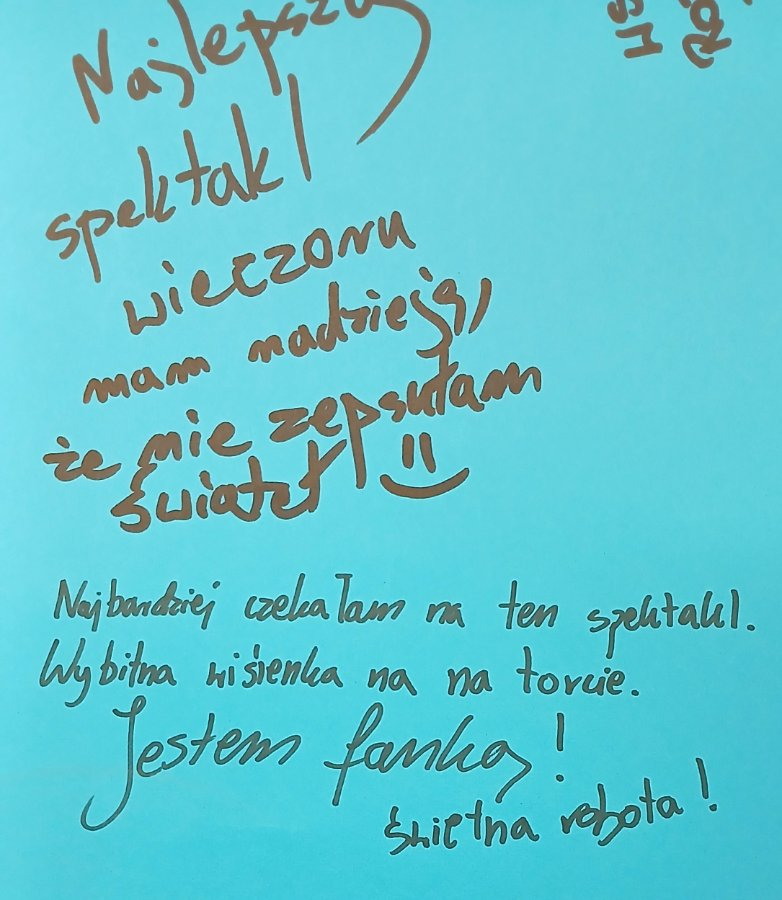 Najlepszy
spektakl
wieczoru
mam nadzieję,
że nie zepsułam
świateł
Najbardziej czekałam na ten spektakl.
Wybitna wisienka na na torcie.
Jestem fanką!
świetna robota!